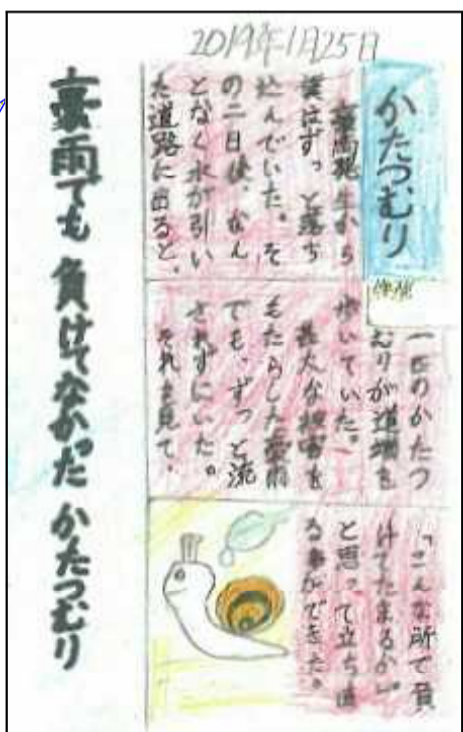 2019年1月25日
かたつむり
豪雨発生から
僕はずっと落ち
込んでいた。そ
の二日後、なん
となく水が引い
た道路に出ると、
一匹のかたつ
むりが道端を
歩いていた。
甚大な被害を
もたらした豪雨
でも、ずっと流
されずにいた。
それを見て、
「こんな所で負
けてたまるか」
と思って立ち直
る事ができた。
豪雨でも 負けてなかった かたつむり